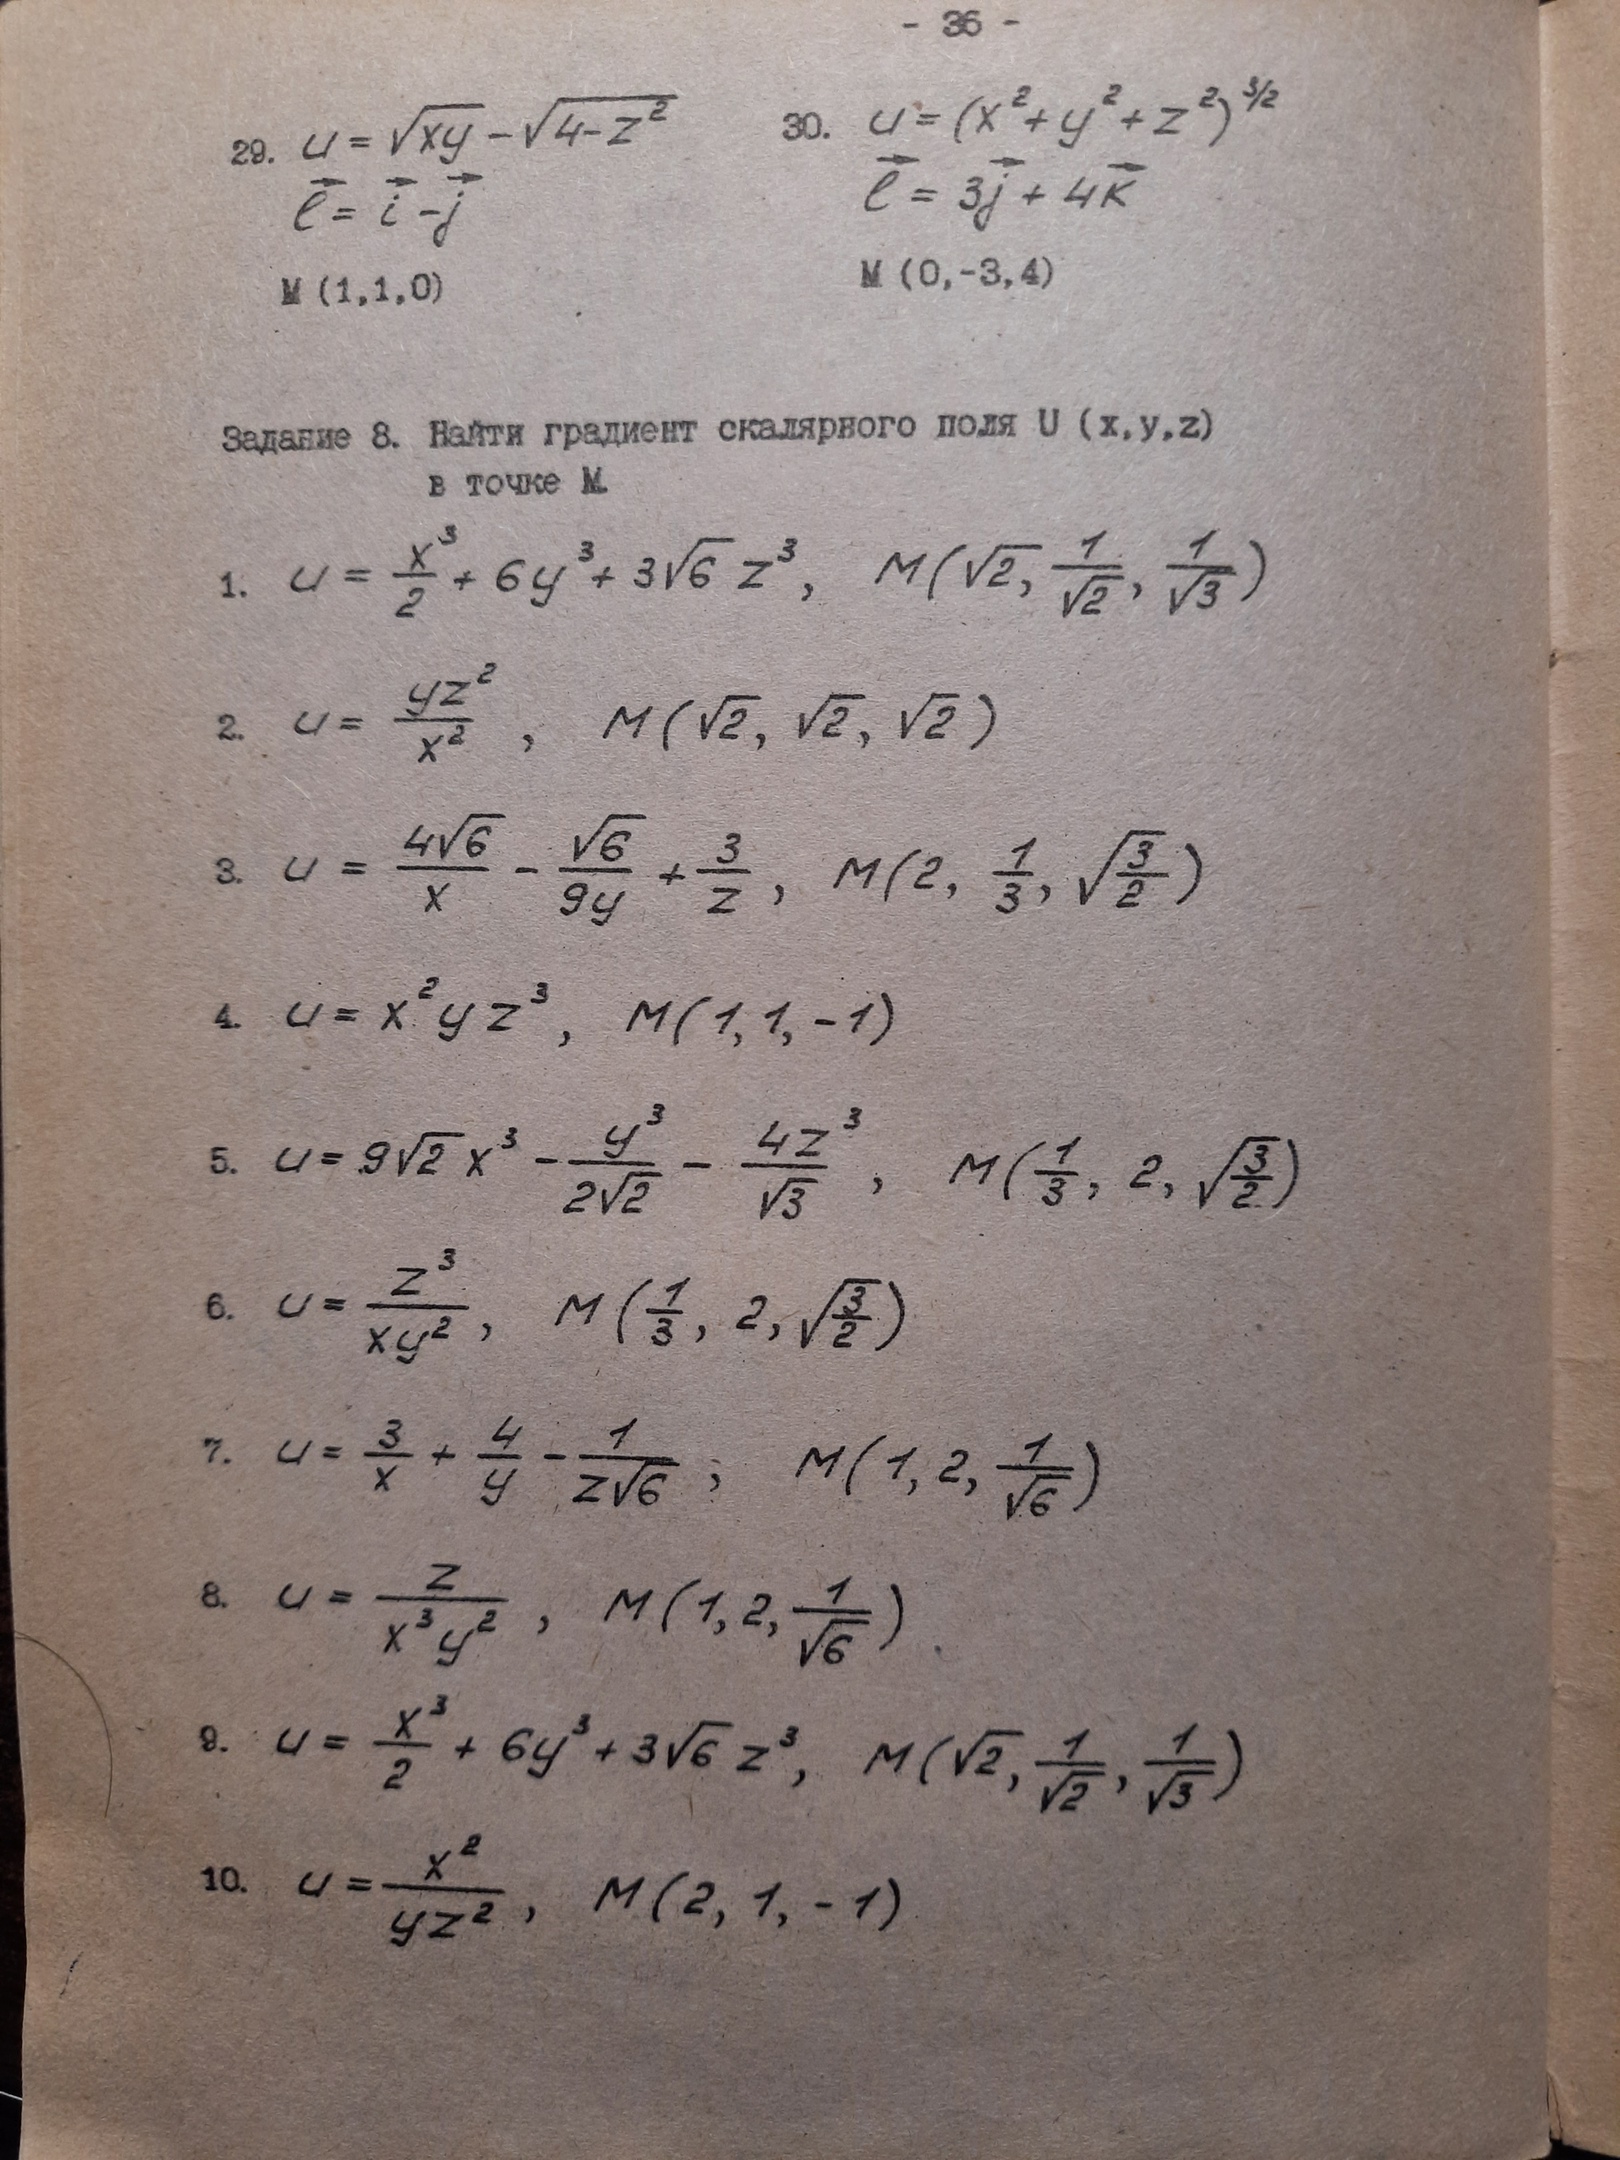 - 36 -
29. u = √xy - √4-z²
l⃗ = i⃗ - j⃗
M (1,1,0)
30. u = (x² + y² + z²)^3/2
l⃗ = 3j⃗ + 4k⃗
M (0,-3,4)
Задание 8. Найти градиент скалярного поля U (x,y,z)
в точке M.
1. u = x³/2 + 6y³ + 3√6 z³, M(√2, 1/√2, 1/√3)
2. u = yz²/x², M(√2, √2, √2)
3. u = 4√6/x - √6/9y + 3/z, M(2, 1/3, √3/2)
4. u = x²yz³, M(1, 1, -1)
5. u = 9√2 x³ - y³/2√2 - 4z³/√3, M(1/3, 2, √3/2)
6. u = z³/xy², M(1/3, 2, √3/2)
7. u = 3/x + 4/y - 1/z√6; M(1, 2, 1/√6)
8. u = z/x³y², M(1, 2, 1/√6)
9. u = x³/2 + 6y³ + 3√6 z³, M(√2, 1/√2, 1/√3)
10. u = x²/yz², M(2, 1, -1)